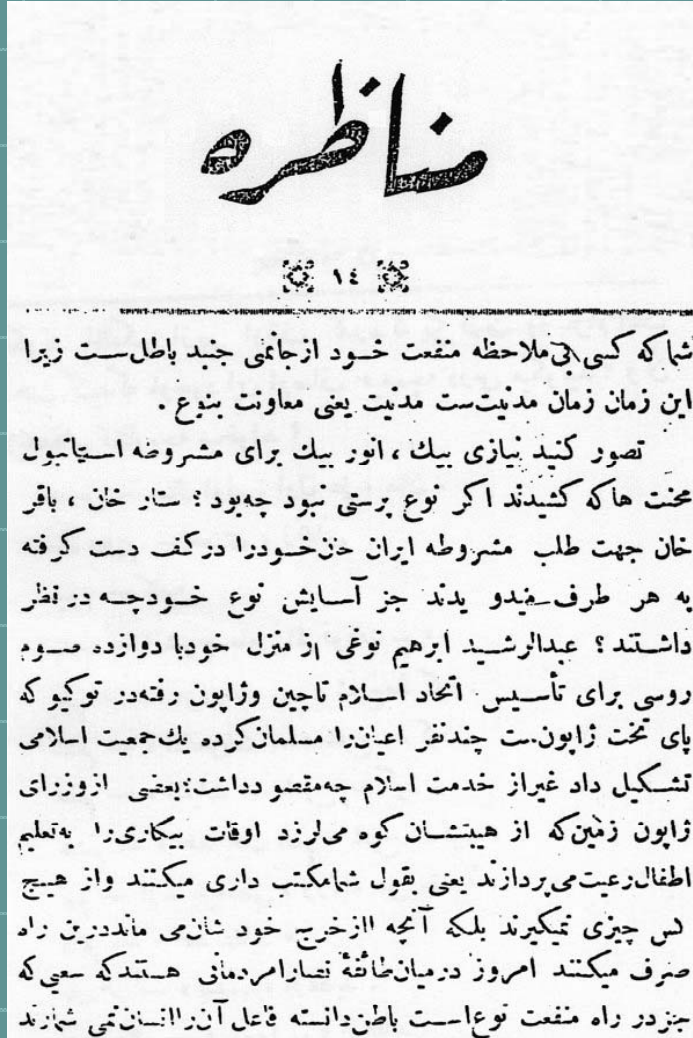 مناظره
١٤
شما که کسی بی ملاحظه منفعت خود از جائی جنبد باطل‌ست زیرا
این زمان زمان مدنیت‌ست مدنیت یعنی معاونت بنوع .
تصور کنید نیازی بیك ، انور بیك برای مشروطه استانبول
محنت ها که کشیدند اکر نوع پرستی نبود چه‌بود ؟ ستار خان ، باقر
خان جهت طلب مشروطه ایران جان خودرا در کف دست کرفته
به هر طرف میدو یدند جز آسایش نوع خودچه در نظر
داشتند ؟ عبدالرشید ابرهیم نوغی از منزل خودبا دوازده صوم
روسی برای تأسیس اتحاد اسلام تاچین وژاپون رفته‌در توکیو که
پای تخت ژاپون‌ست چندنفر اعیان‌را مسلمان‌کرده یك‌جمعیت اسلامی
تشکیل داد غیراز خدمت اسلام چه‌مقصو دداشت؛بعضی ازوزرای
ژاپون زمین‌که از هیبتشان کوه می‌لرزد اوقات بیکاری‌را به‌تعلیم
اطفال‌رعیت‌می‌پردازند یعنی بقول شمامکتب داری میکنند واز هیچ
کس چیزی نمیکیرند بلکه آنچه ازخرج خود شان‌می ماند‌درین راه
صرف میکنند امروز درمیان‌طائفهٔ نصارامردمانی هستندکه سعیی‌که
جزدر راه منفعت نوع‌است باطل‌دانسته فاعل آن‌را‌انسان‌نمی شمارند